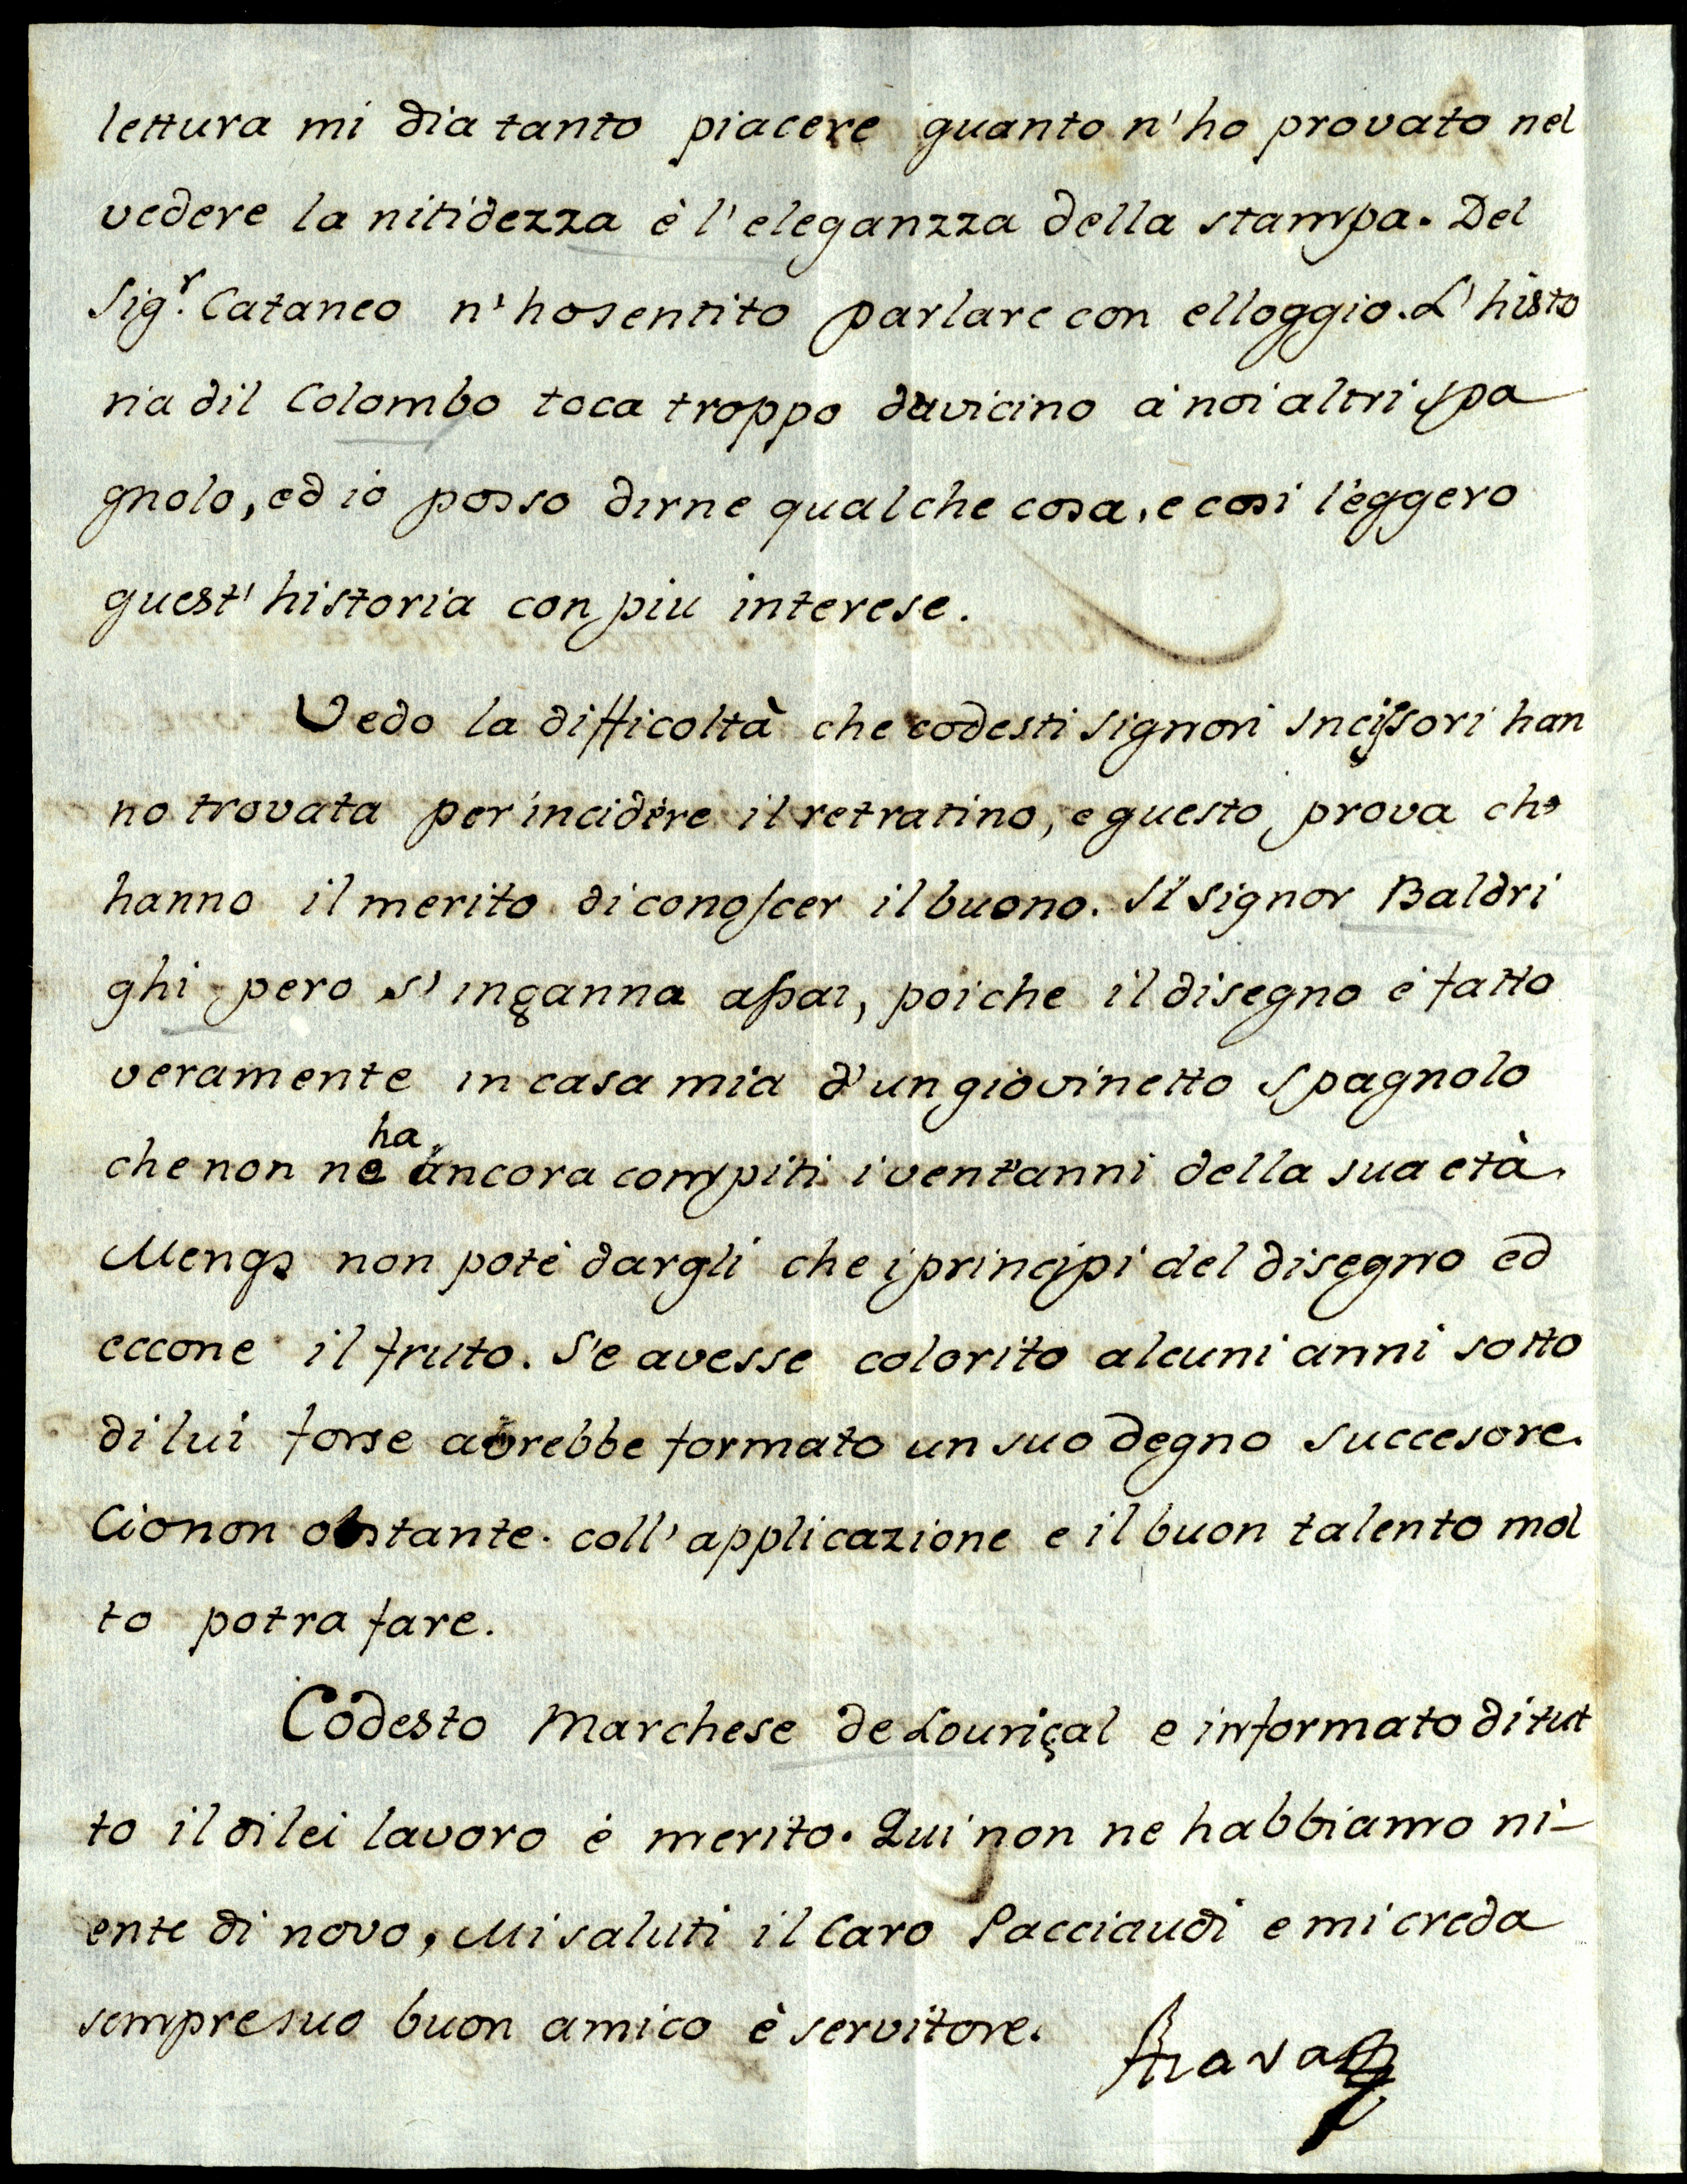 lettura mi dia tanto piacere quanto n'ho provato nel
vedere la nitidezza è l'eleganzza della stampa. Del
Sig.r Cataneo n'ho sentito parlare con elloggio. L'histo
ria dil Colombo toca troppo davicino à noi altri spa
gnolo, ed io posso dirne qualche cosa, e cosi l'eggero
quest' historia con piu interese.
Vedo la difficoltà che codesti signori Incissori han
no trovata per incidère il retratino, e questo prova che
hanno il merito di conoscer il buono. Il Signor Baldri
ghi pero s'inganna assai, poiche il disegno è fatto
veramente in casa mia d'un giovinetto Spagnolo
che non ne ha áncora compiti i vent'anni della sua età.
Mengs non potè dargli che i principi del disegno ed
eccone il fruto. S'e avesse colorito alcuni anni sotto
di lui forse aórebbe formato un suo degno succesore.
Cionon obstante. coll'applicazione e il buon talento mol
to potra fare.
Codesto Marchese de Louriçal e informato di tut
to il di lei lavoro è merito. Qui non ne habbiamo ni-
ente di novo, Mi saluti il Caro Pacciaudi e mi creda
sempre suo buon amico è servitore.
Azara